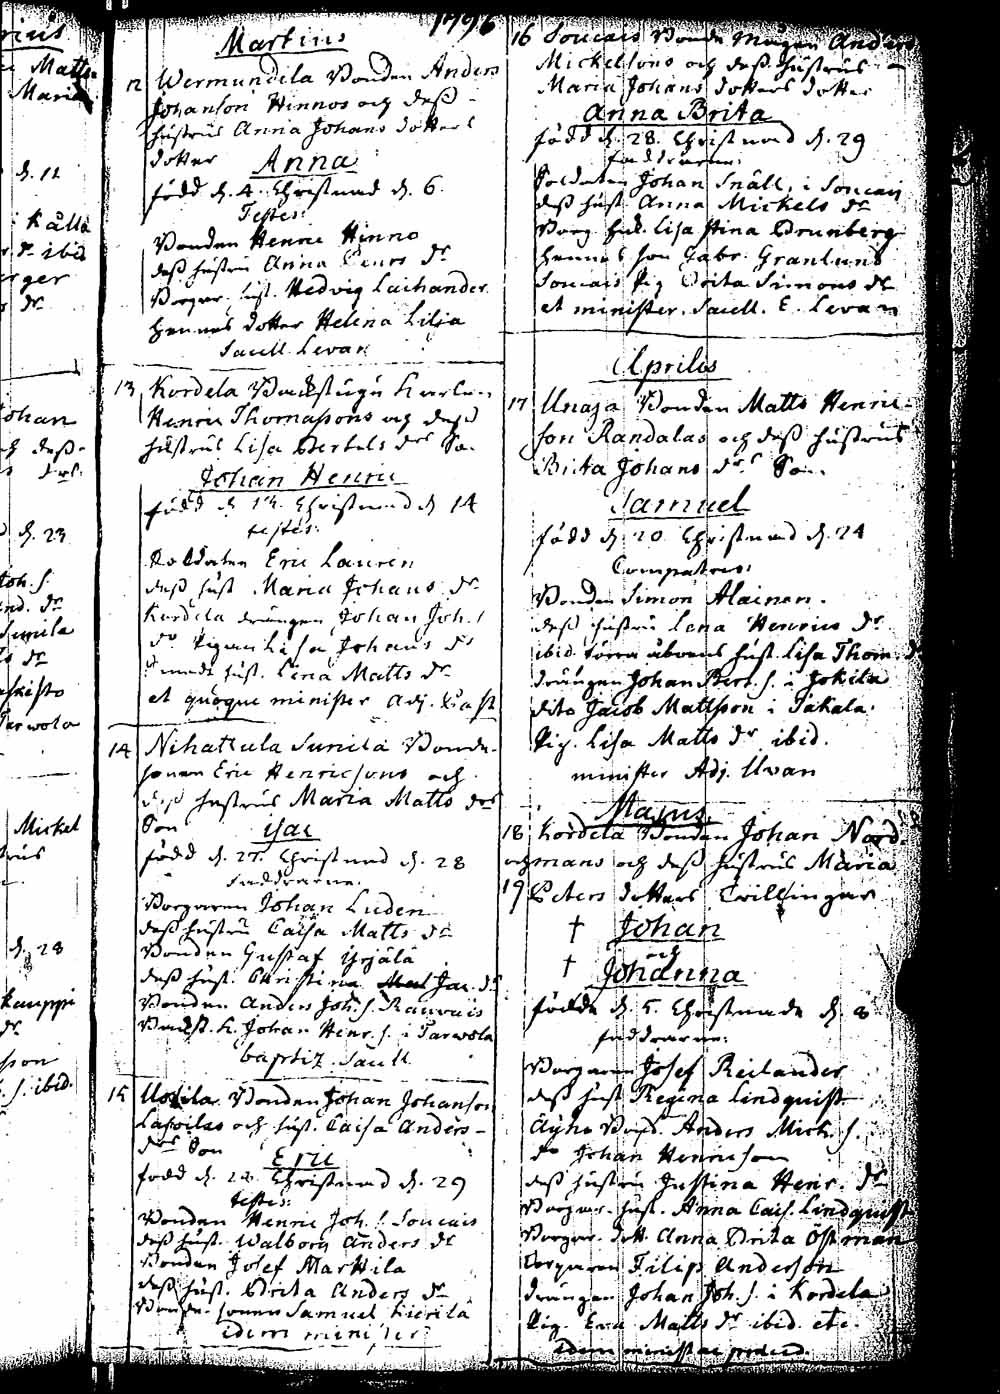 1796
rius
Matts
Maria
d. 11
Källa
ibid
erger
dr
Johan
ch dess
drs.
d. 23
Joh. S.
ind. dr
Sunila
dr
Mickel
trus
d. 28
kauppi
dr
sson
S. ibid.
Martius
12 Wermundila Bonden Anders
Johanson Hinnos och dess
hustrus Anna Johans dotters
dotter Anna
född d. 4. Christnad d. 6.
Testes:
Bonden Henric Hinno
dess hustru Anna dr
Borgar. hust. Hedvig Laihander
hennes dotter Helena Lilja
Sacell. Levan
13 Kordela
Henric Thomassons och dess
hustrus Lisa Bertels drs Son
Johan Henric
född d. 13. Christnad d. 14
testes:
Soldaten Eric Lauren
dess hust. Maria Johans dr
Kordela drängen Johan Joh. S.
do Pigan Lisa Johans dr
hust. Lena Matts dr
et quoque minister Adj.
14 Nihattula Sunila Bonde-
sonen Eric Henricsons och
dess hustrus Maria Matts drs
Son Isac
född d. 27. Christnad d. 28
faddrarne.
Borgaren Johan Luden
dess hustru Caisa Matts dr
Bonden Gustaf Yrjälä
dess hust. Christina Jac. dr
Bonden Anders Joh. S. Rauvais
Johan Henr. S. i Tarvola
baptiz. Sacell.
15 Uotila Bonden Johan Johanson
och hust. Caisa Anders
drs Son Eric
född d. 28 Christnad d. 29
testes:
Bonden Henric Joh. S. Soucais
dess hust. Walborg Anders dr
Bonden Josef Markkila
dess hust. Brita Anders dr
Bonde sonen Samuel Kierilä
idem minister
16 Soucais Bonde mågen Anders
Mickelsons och dess hustrus
Maria Johans dotters dotter
Anna Brita
född d. 28. Christnad d. 29
faddrarne:
Soldaten Johan Snäll, i Soucais
dess hust. Anna Mickels dr
Borg. Lisa Stina Brunberg
hennes son Gabr. Granlund
Soucais Pig. Brita Simons dr
et minister. Sacell. E. Levan
Aprilis
17 Unaja Bonden Matts Henric-
son Randalas och dess hustrus
Brita Johans drs Son
Samuel
född d. 20 Christnad d. 24
Compatres:
Bonden Simon Alainen.
dess hustru Lena Henrics dr
ibid. hust. Lisa Thom. dr
drängen Johan S. i Jokila
dito Jacob Mattsson i Takala.
Pig. Lisa Matts dr ibid.
minister Adj. Uvan
Majus.
18 Kordela Bonden Johan Nord-
och mans och dess hustrus Maria
19 Peters dotters Tvillingar
† Johan
och
† Johanna
födde d. 5. Christnade d. 8
faddrarne:
Borgaren Josef Reilander
dess hust. Regina Lindquist
Äyhö Anders Mich. S.
do Johan Henricson
dess hustru Justina Henr. dr
Borgar. hust. Anna Cais. Lindquist
Borgar. dott. Anna Brita Östman
Borgaren Filip Anderson
drängen Johan Joh. S. i Kordela
Pig. Matts dr ibid. etc.
idem minister